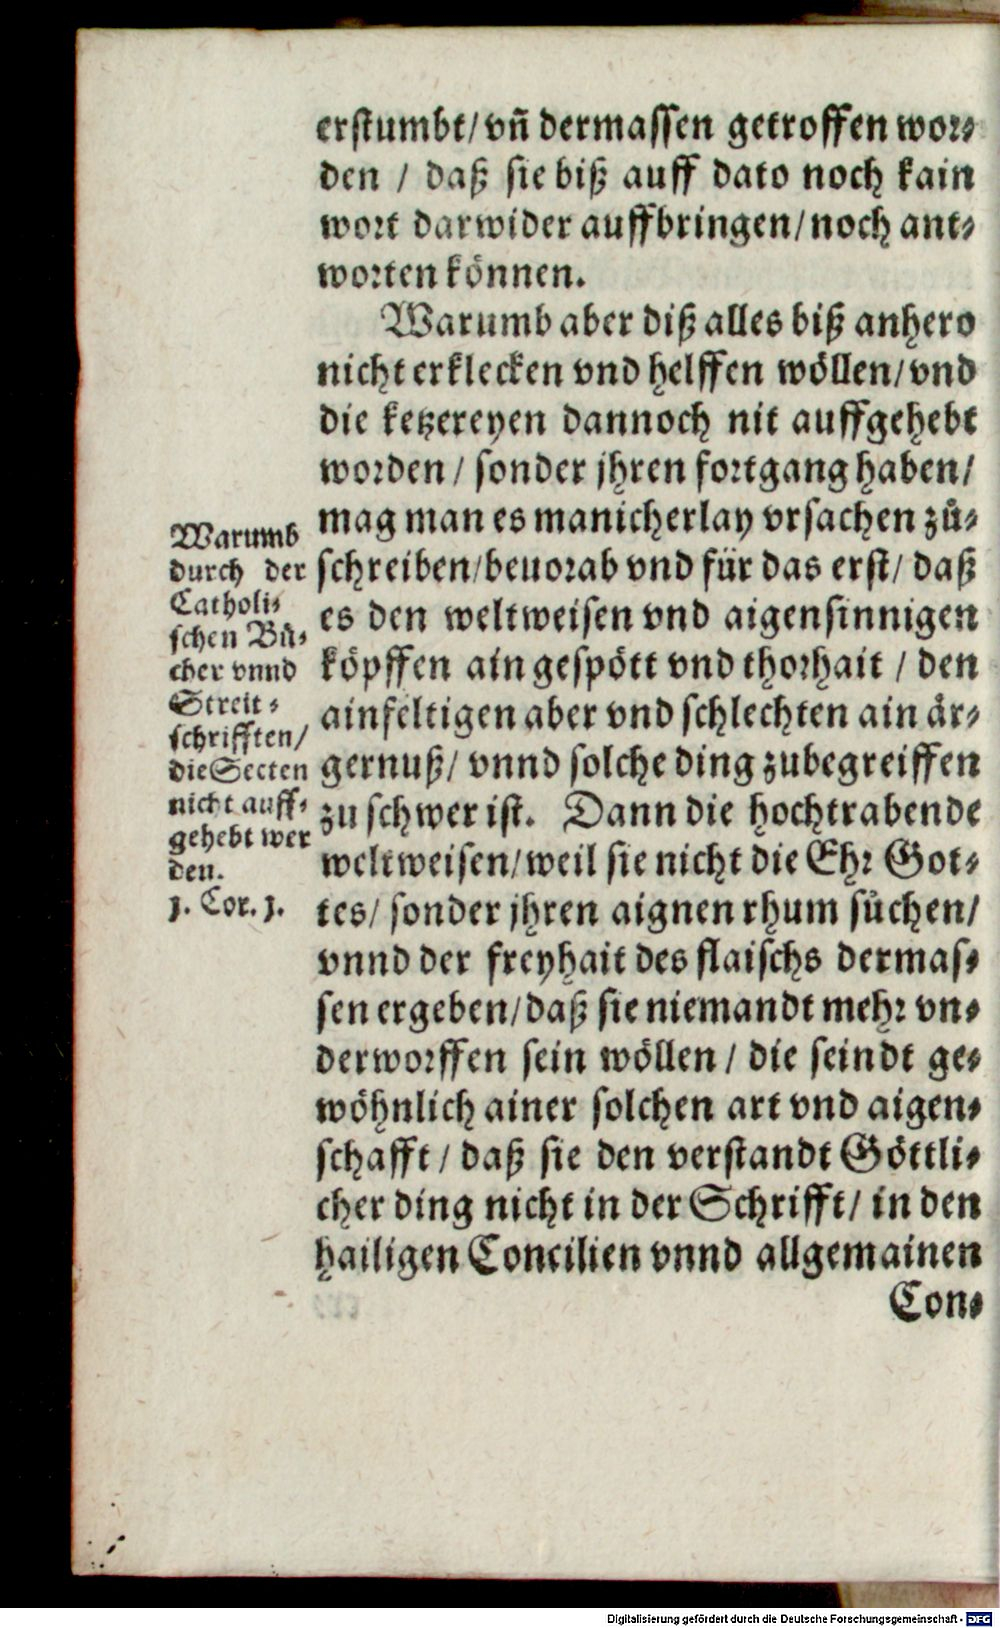 erstumbt/ vñ dermassen getroffen wor⸗
den / daß sie biß auff dato noch kain
wort darwider auffbringen/ noch ant⸗
worten können.
Warumb aber diß alles biß anhero
nicht erklecken vnd helffen wöllen/ vnd
die ketzereyen dannoch nit auffgehebt
worden / sonder jhren fortgang haben/
mag man es manicherlay vrsachen zů⸗
schreiben/ beuorab vnd für das erst/ daß
es den weltweisen vnd aigensinnigen
köpffen ain gespött vnd thorhait / den
ainfeltigen aber vnd schlechten ain är⸗
gernuß/ vnnd solche ding zubegreiffen
zu schwer ist. Dann die hochtrabende
weltweisen/ weil sie nicht die Ehr Got⸗
tes/ sonder jhren aignen rhum sůchen/
vnnd der freyhait des flaischs dermas⸗
sen ergeben/ daß sie niemandt mehr vn⸗
derworffen sein wöllen / die seindt ge⸗
wöhnlich ainer solchen art vnd aigen⸗
schafft / daß sie den verstandt Göttli⸗
cher ding nicht in der Schrifft/ in den
hailigen Concilien vnnd allgemainen
Con⸗
Warumb
durch der
Catholi⸗
schen Bů⸗
cher vnnd
Streit⸗
schrifften/
die Secten
nicht auff⸗
gehebt wer
den.
1. Cor. 1.
Digitalisierung gefördert durch die Deutsche Forschungsgemeinschaft - DFG